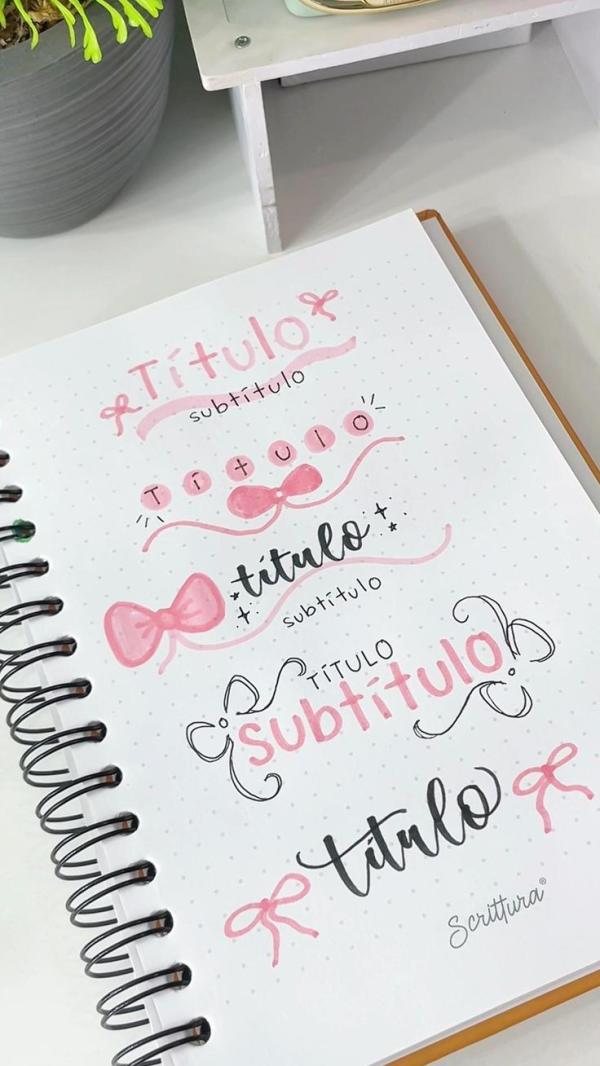 Título
subtítulo
Título
título
subtítulo
TÍTULO
subtítulo
título
Scrittura®